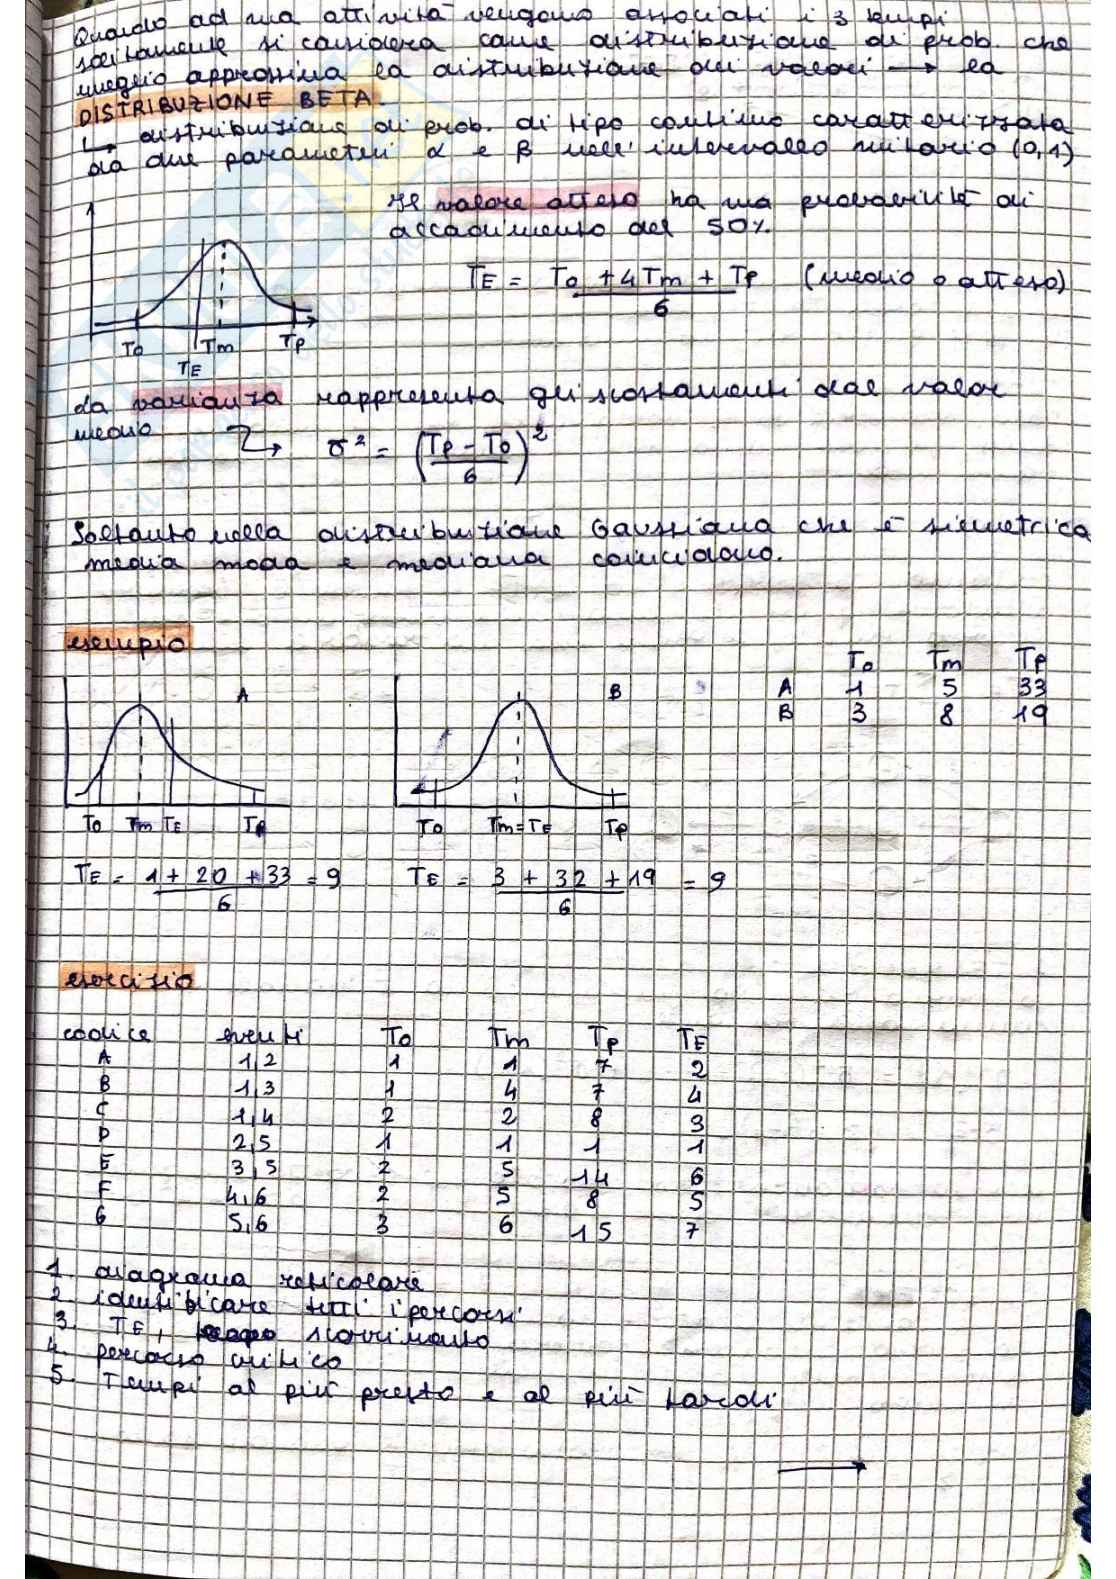 Quando ad una attività vengono associati i 3 tempi
solitamente si considera come distribuzione di prob. che
meglio approssima la distribuzione dei valori → la
DISTRIBUZIONE BETA.
↳ distribuzione di prob. di tipo continuo caratterizzata
da due parametri α e β nell'intervallo unitario (0,1)
Il valore atteso ha una probabilità di
accadimento del 50%.
TE = To + 4Tm + Tp (medio o atteso)
6
To Tm Tp
TE
La varianza rappresenta gli scostamenti dal valor
medio
σ² = (Tp - To)²
6
Soltanto nella distribuzione Gaussiana che è simmetrica
media moda e mediana coincidono.
esempio
To Tm Tp
A 1 5 33
B 3 8 19
A B
To Tm TE Tp To Tm=TE Tp
TE = 1 + 20 + 33 = 9 TE = 3 + 32 + 19 = 9
6 6
esercizio
codice eventi To Tm Tp TE
A 1,2 1 1 7 2
B 1,3 1 4 7 4
C 1,4 2 2 8 3
D 2,5 1 1 1 1
E 3,5 2 5 14 6
F 4,6 2 5 8 5
G 5,6 3 6 15 7
1. diagramma reticolare
2. identificare tutti i percorsi
3. TE, scorrimento
4. percorso critico
5. Tempi al più presto e al più tardi
→